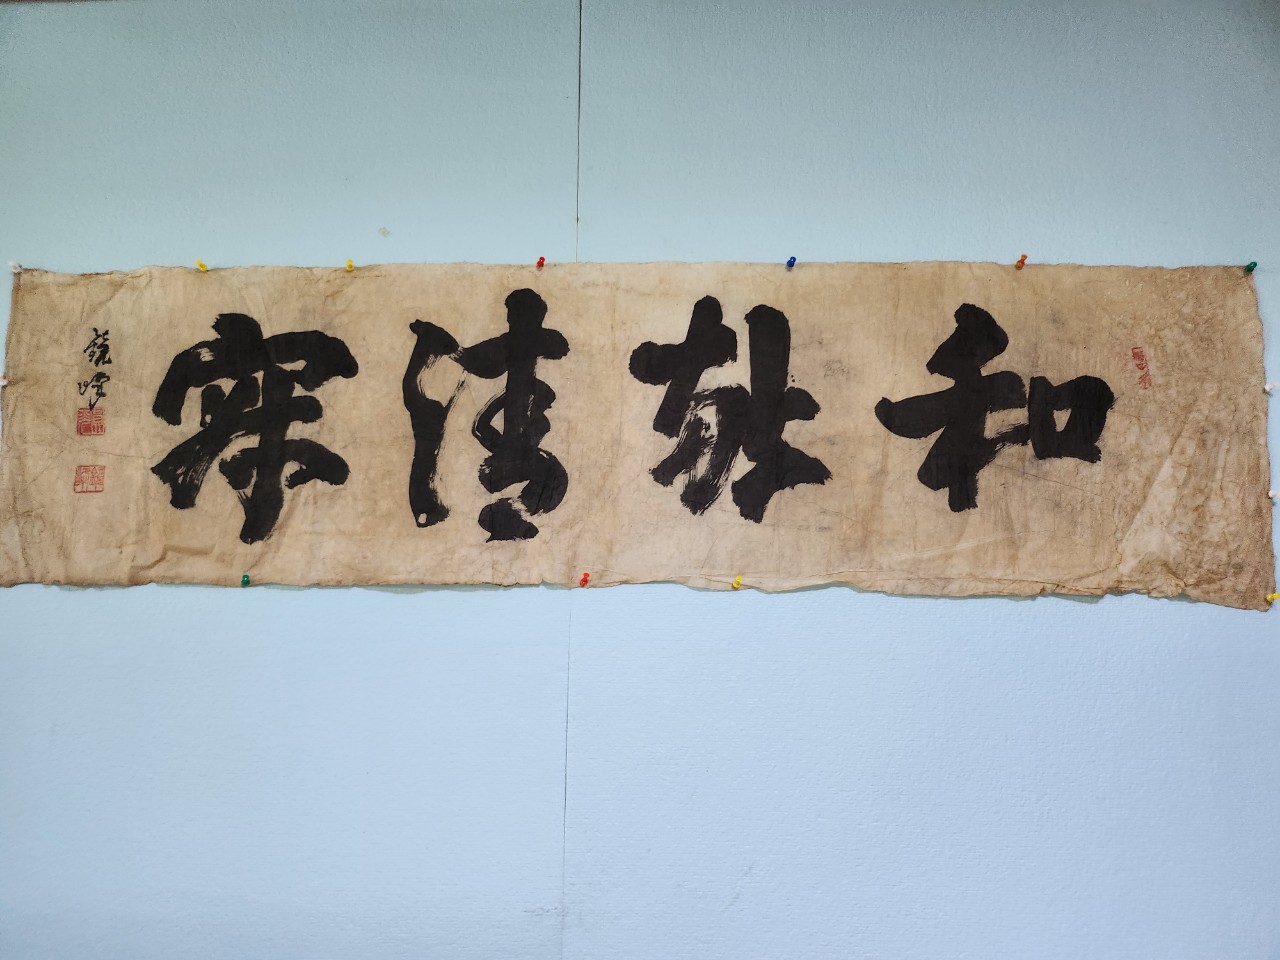 和敬清寂
鏡峰